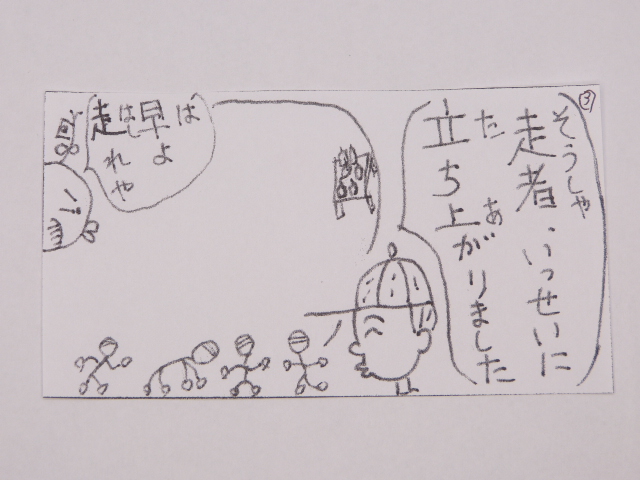 ③
そうしゃ
走者、いっせいに
た あ
立ち上がりました
は
早よ
はし
走れや